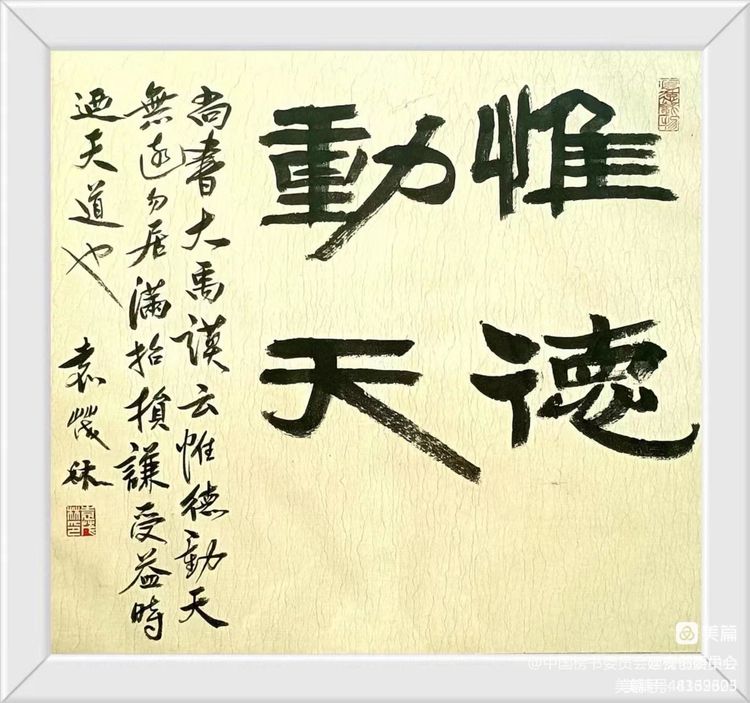 惟德
動天
尚書大禹謨云惟德動天
無遠勿届滿招損謙受益時
迺天道也
袁茂林
美篇
@中国榜书委员会
美篇号